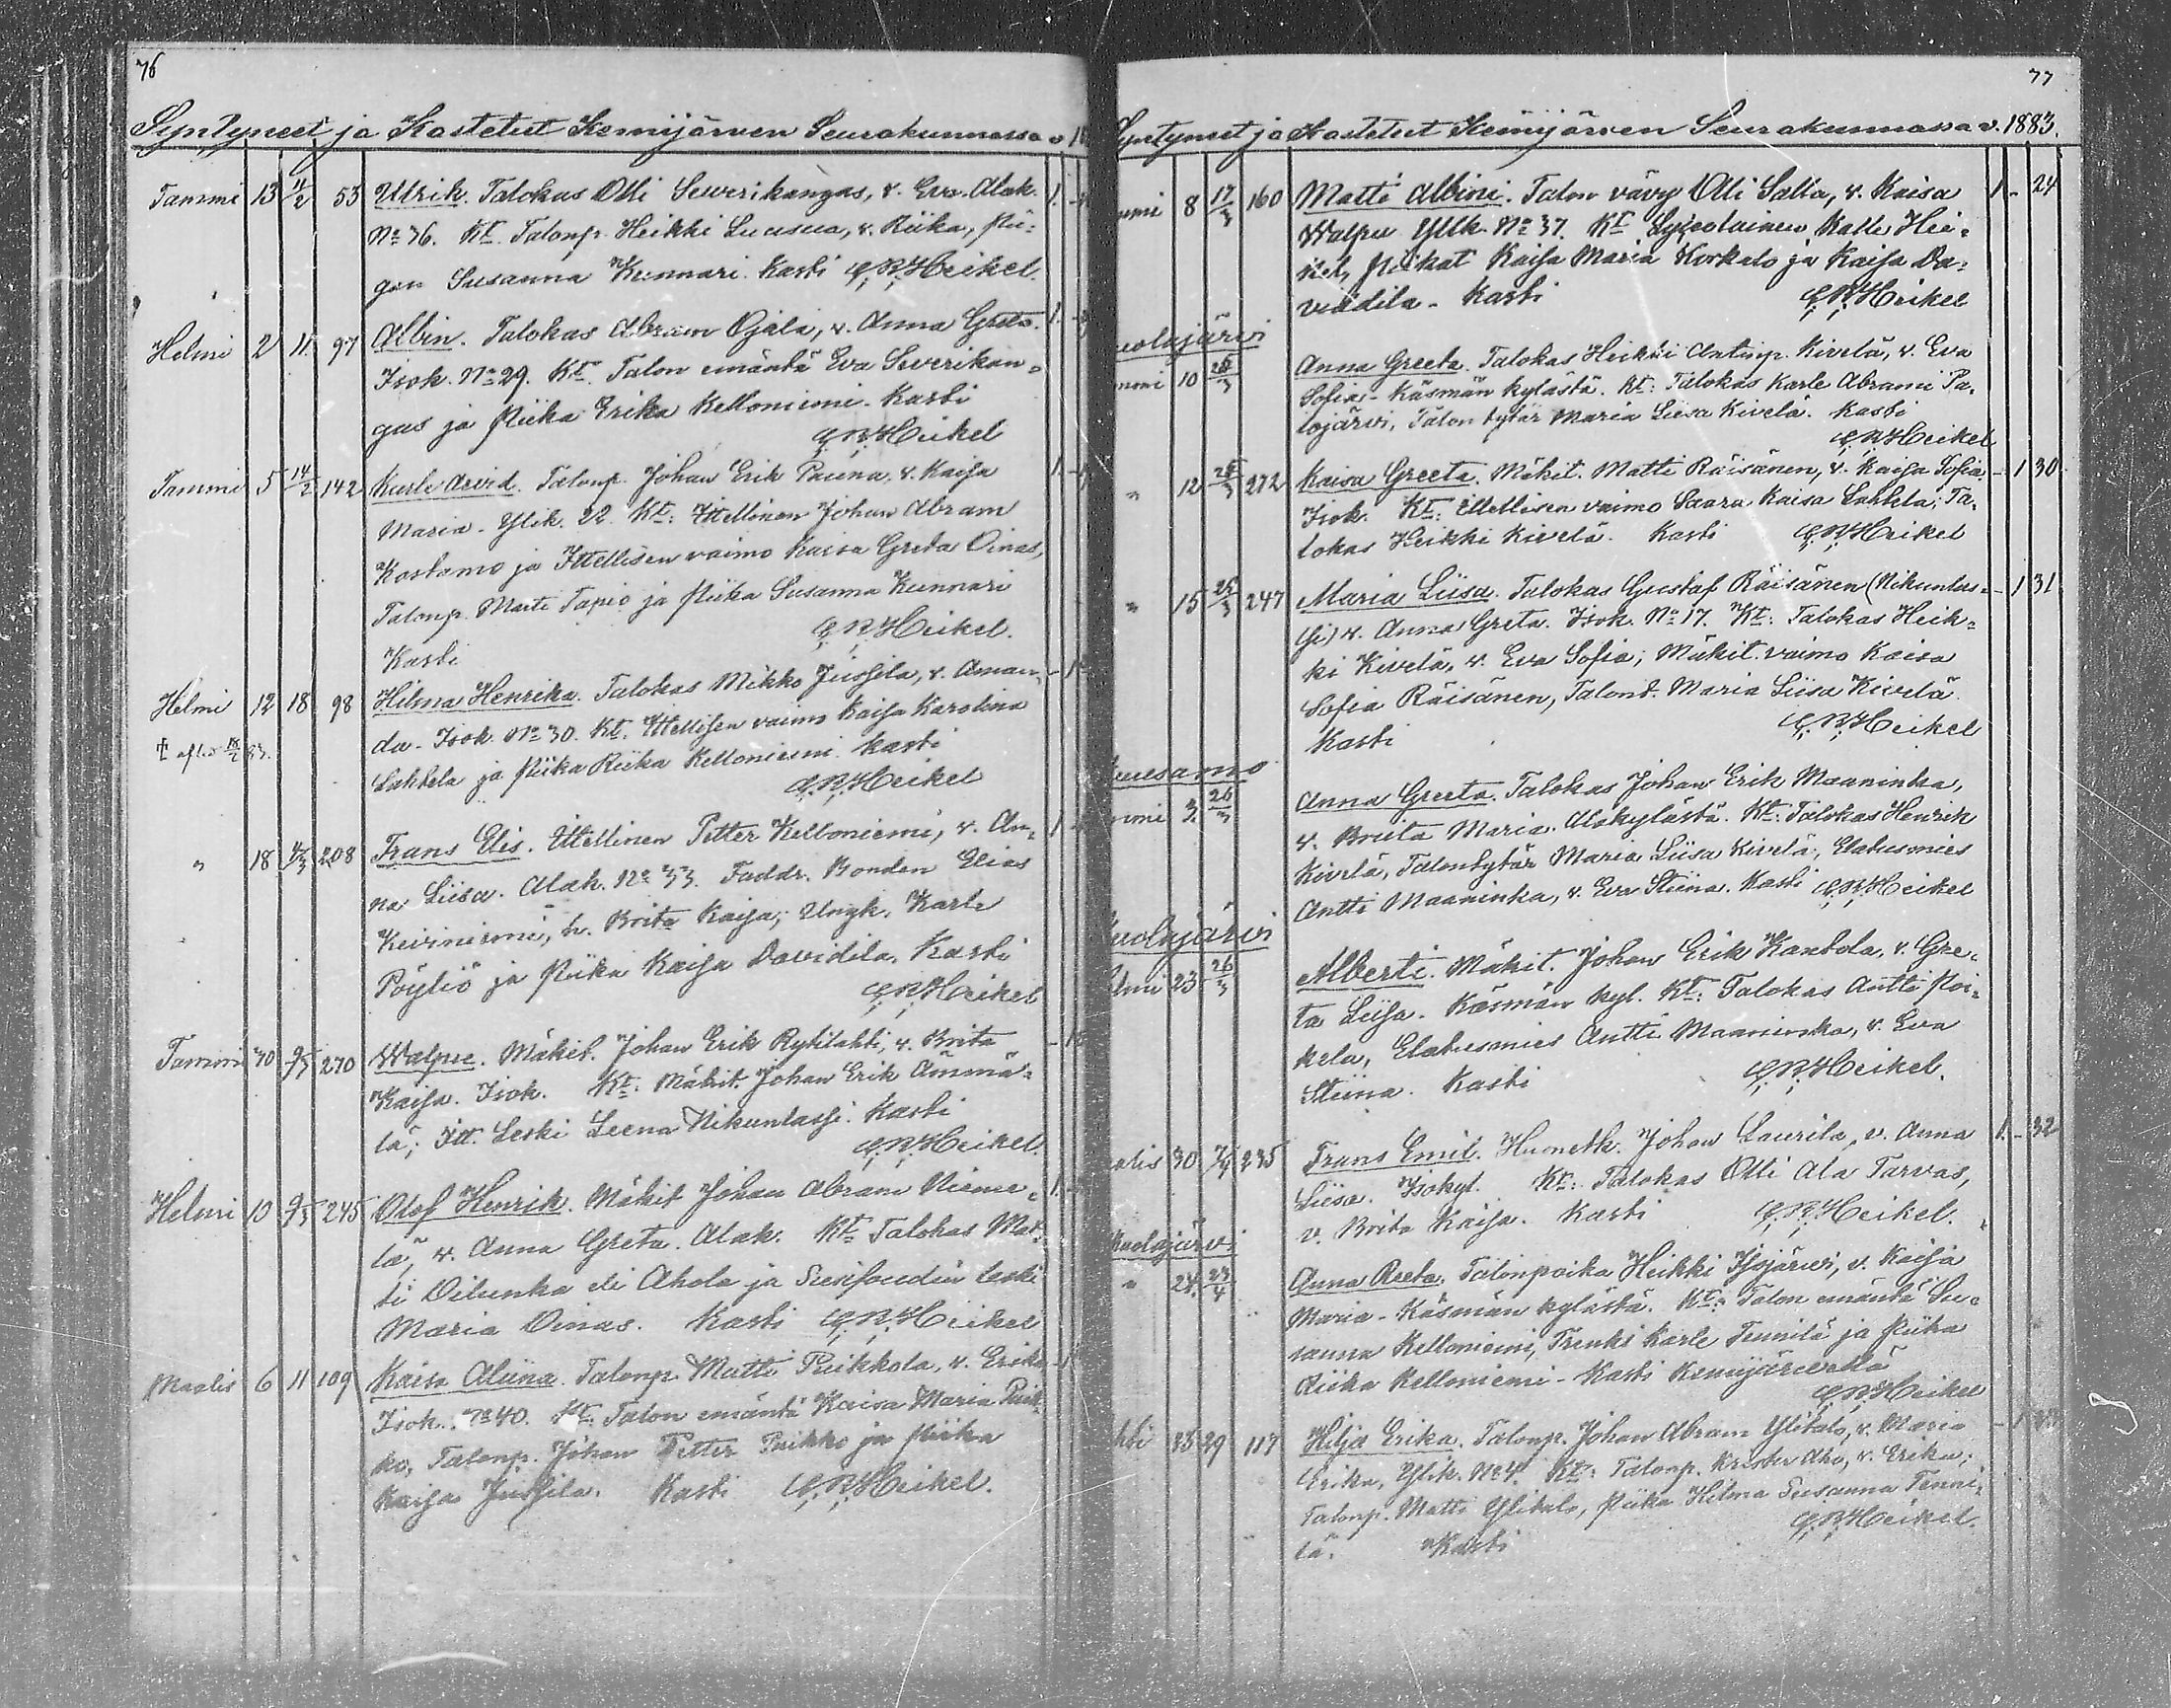 76
Syntyneet ja Kastetut Kemijärven Seurakunnassa v 18
Tammi 13 11/2 53 Ulrik. Talokas Olli Severikangas, v. Eva. Alak. 1. -
No 36. Kt. Talonp. Heikki Luusua, v. Riika, Pii-
gan Susanna Kunnari. Kasti C.R.Heikel.
Helmi 2 11. 97 Albin. Talokas Abram Ojala, v. Anna Greta. 1. -
Isok. No 29. Kt. Talon emäntä Eva Severikan-
gas ja Piika Erika Kelloniemi. Kasti
C.R.Heikel
Tammi 5 14/2 142 Karle Arvid. Talonp. Johan Erik Pauna, v. Kaisa 1. -
Maria - Ylik. 22. Kt: Ittellinen Johan Abram
Kostamo ja Ittellisen vaimo Kaisa Greta Oinas,
Talonp. Matti Tapio ja Piika Susanna Kunnari
Kasti C.R.Heikel.
Helmi 12 18 98 Hilma Henrika. Talokas Mikko Jussila, v. Aman-
da - Isok. No 30. Kt. Ittellisen vaimo Kaisa Karolina
Lahtela ja Piika Riika Kelloniemi. Kasti
C.R.Heikel
" 18 4/3 208 Frans Elis. Ittellinen Petter Kelloniemi, v. An- 1 -
na Liisa. Alak. No 33. Faddr. Bonden Elias
Keiriniemi, h. Brita Kaisa; Ungk. Karle
Pöyliö ja Piika Kaisa Davidila. Kasti
C.R.Heikel
Tammi 30 9/3 270 Walpue. Mäkit. Johan Erik Rytilahti, v. Brita
Kaisa. Isok. Kt: Mäkit. Johan Erik Ämmä-
lä; Itt. Leski Leena Nikuntassi. Kasti
C.R.Heikel.
Helmi 10 9/3 245 Olof Henrik. Mäkit Johan Abram Nieme- 1. -
lä, v. Anna Greta. Alak. Kt: Talokas Mat-
ti Oilunka eli Ahola ja Leski
Maria Oinas. Kasti C.R.Heikel
Maalis 6 11 109 Kaisa Aliina. Talonp. Matti Puikkola, v. Erika
Isok. No 40. Kt: Talon emäntä Kaisa Maria Puik-
ko, Talonp. Johan Petter Puikko ja Piika
Kaisa Jussila. Kasti C.R.Heikel.
77
Syntyneet ja Kastetut Kemijärven Seurakunnassa v. 1883.
8 17/3 160 Matti Albini. Talon vävy Olli Salla, v. Kaisa 1 - 24
Walpu Ylik. No 37. Kt Kalle Hei-
kel, Piikat Kaisa Maria Korkalo ja Kaisa Da-
vidila - Kasti C.R.Heikel
10 25/3 Anna Greeta. Talokas Heikki Antinp. Kivelä, v. Eva
Sofia - Käsmän kylästä. Kt: Talokas Karle Abrami Pa-
lojärvi, Talon tytär Maria Liisa Kivelä. Kasti
C.R.Heikel
" 12 25/3 272 Kaisa Greeta. Mäkit. Matti Räisänen, v. Kaisa Sofia. - 1 30
Isok. Kt: Ittellisen vaimo Saara Kaisa Lahtela; Ta-
lokas Heikki Kivelä. Kasti C.R.Heikel
" 15 25/3 247 Maria Liisa. Talokas Gustaf Räisänen (Nikuntas- - 1 31
si) v. Anna Greta. Isok. No 17. Kt: Talokas Heik-
ki Kivelä, v. Eva Sofia; Mäkit. vaimo Kaisa
Sofia Räisänen, Talond. Maria Liisa Kivelä.
Kasti C.R.Heikel
Kuusamo
3 26/3 Anna Greeta. Talokas Johan Erik Maaninka,
v. Briita Maria. Alakylästä. Kt: Talokas Henrik
Kivelä, Talontytär Maria Liisa Kivelä, Elatusmies
Antti Maaninka, v. Eva Stiina. Kasti C.R.Heikel
Kuolajärvi
23 26/3 Alberti. Mäkit. Johan Erik Kantola, v. Gre-
ta Liisa. Käsmän kyl. Kt: Talokas Antti Poi-
kela, Elatusmies Antti Maaninka, v. Eva
Stiina. Kasti C.R.Heikel.
30 7/4 235 Frans Emil. Huoneth. Johan Laurila, v. Anna 1. - 32
Liisa. Isokyl. Kt: Talokas Olli Ala Tarvas,
v. Brita Kaisa. Kasti C.R.Heikel.
Kuolajärvi
" 24. 23/4 Anna Reeta. Talonpoika Heikki Isojärvi, v. Kaisa
Maria - Käsmän kylästä. Kt: Talon emäntä Su-
sanna Kelloniemi, Trenki Karle Tennilä ja Piika
Riika Kelloniemi - Kasti Kemijärvellä
C.R.Heikel
29 117 Hilja Erika. Talonp. Johan Abram Ylitalo, v. Maria - 1
Erika, Ylik. No 4. Kt: Talonp. Krister Aho, v. Erika;
Talonp. Matti Ylitalo, Piika Hilma Susanna Tenni-
lä. Kasti C.R.Heikel.